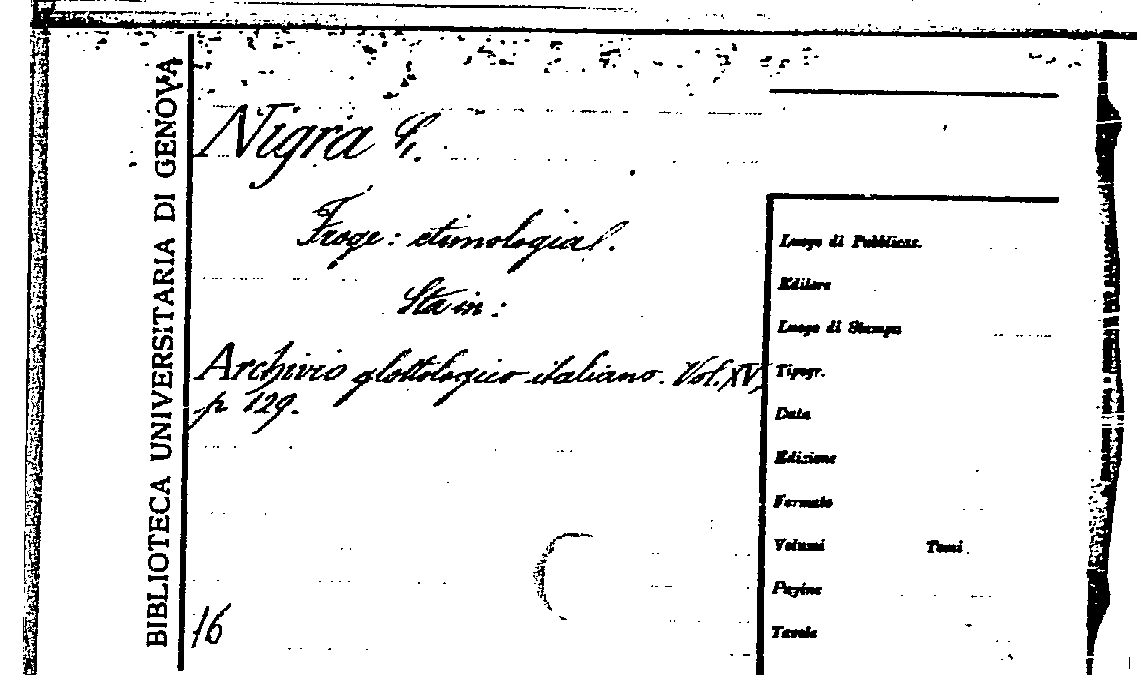 BIBLIOTECA UNIVERSITARIA DI GENOVA
Nigra C.
Froge: etimologia.
Sta in:
Archivio glottologico italiano. Vol. XV,
p 129.
16
Luogo di Pubblicaz.
Editore
Luogo di Stampa
Tipogr.
Data
Edizione
Formato
Volumi Tomi
Pagine
Tavole